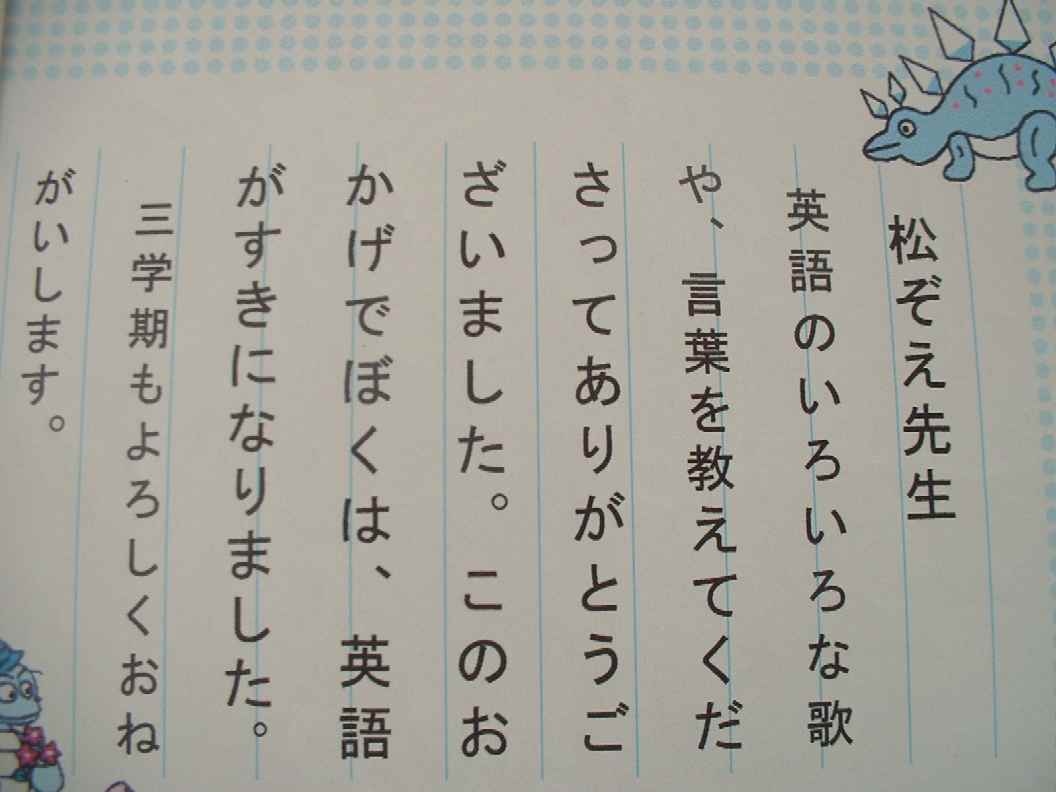 松ぞえ先生
英語のいろいろな歌
や、言葉を教えてくだ
さってありがとうご
ざいました。このお
かげでぼくは、英語
がすきになりました。
三学期もよろしくおね
がいします。